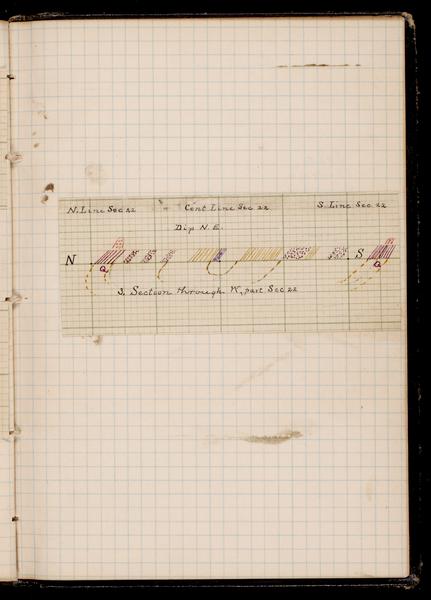 N. Line Sec 22 Cent Line Sec 22 S. Line Sec 22
Dip N.E.
N S
3. Section through W. part Sec 22